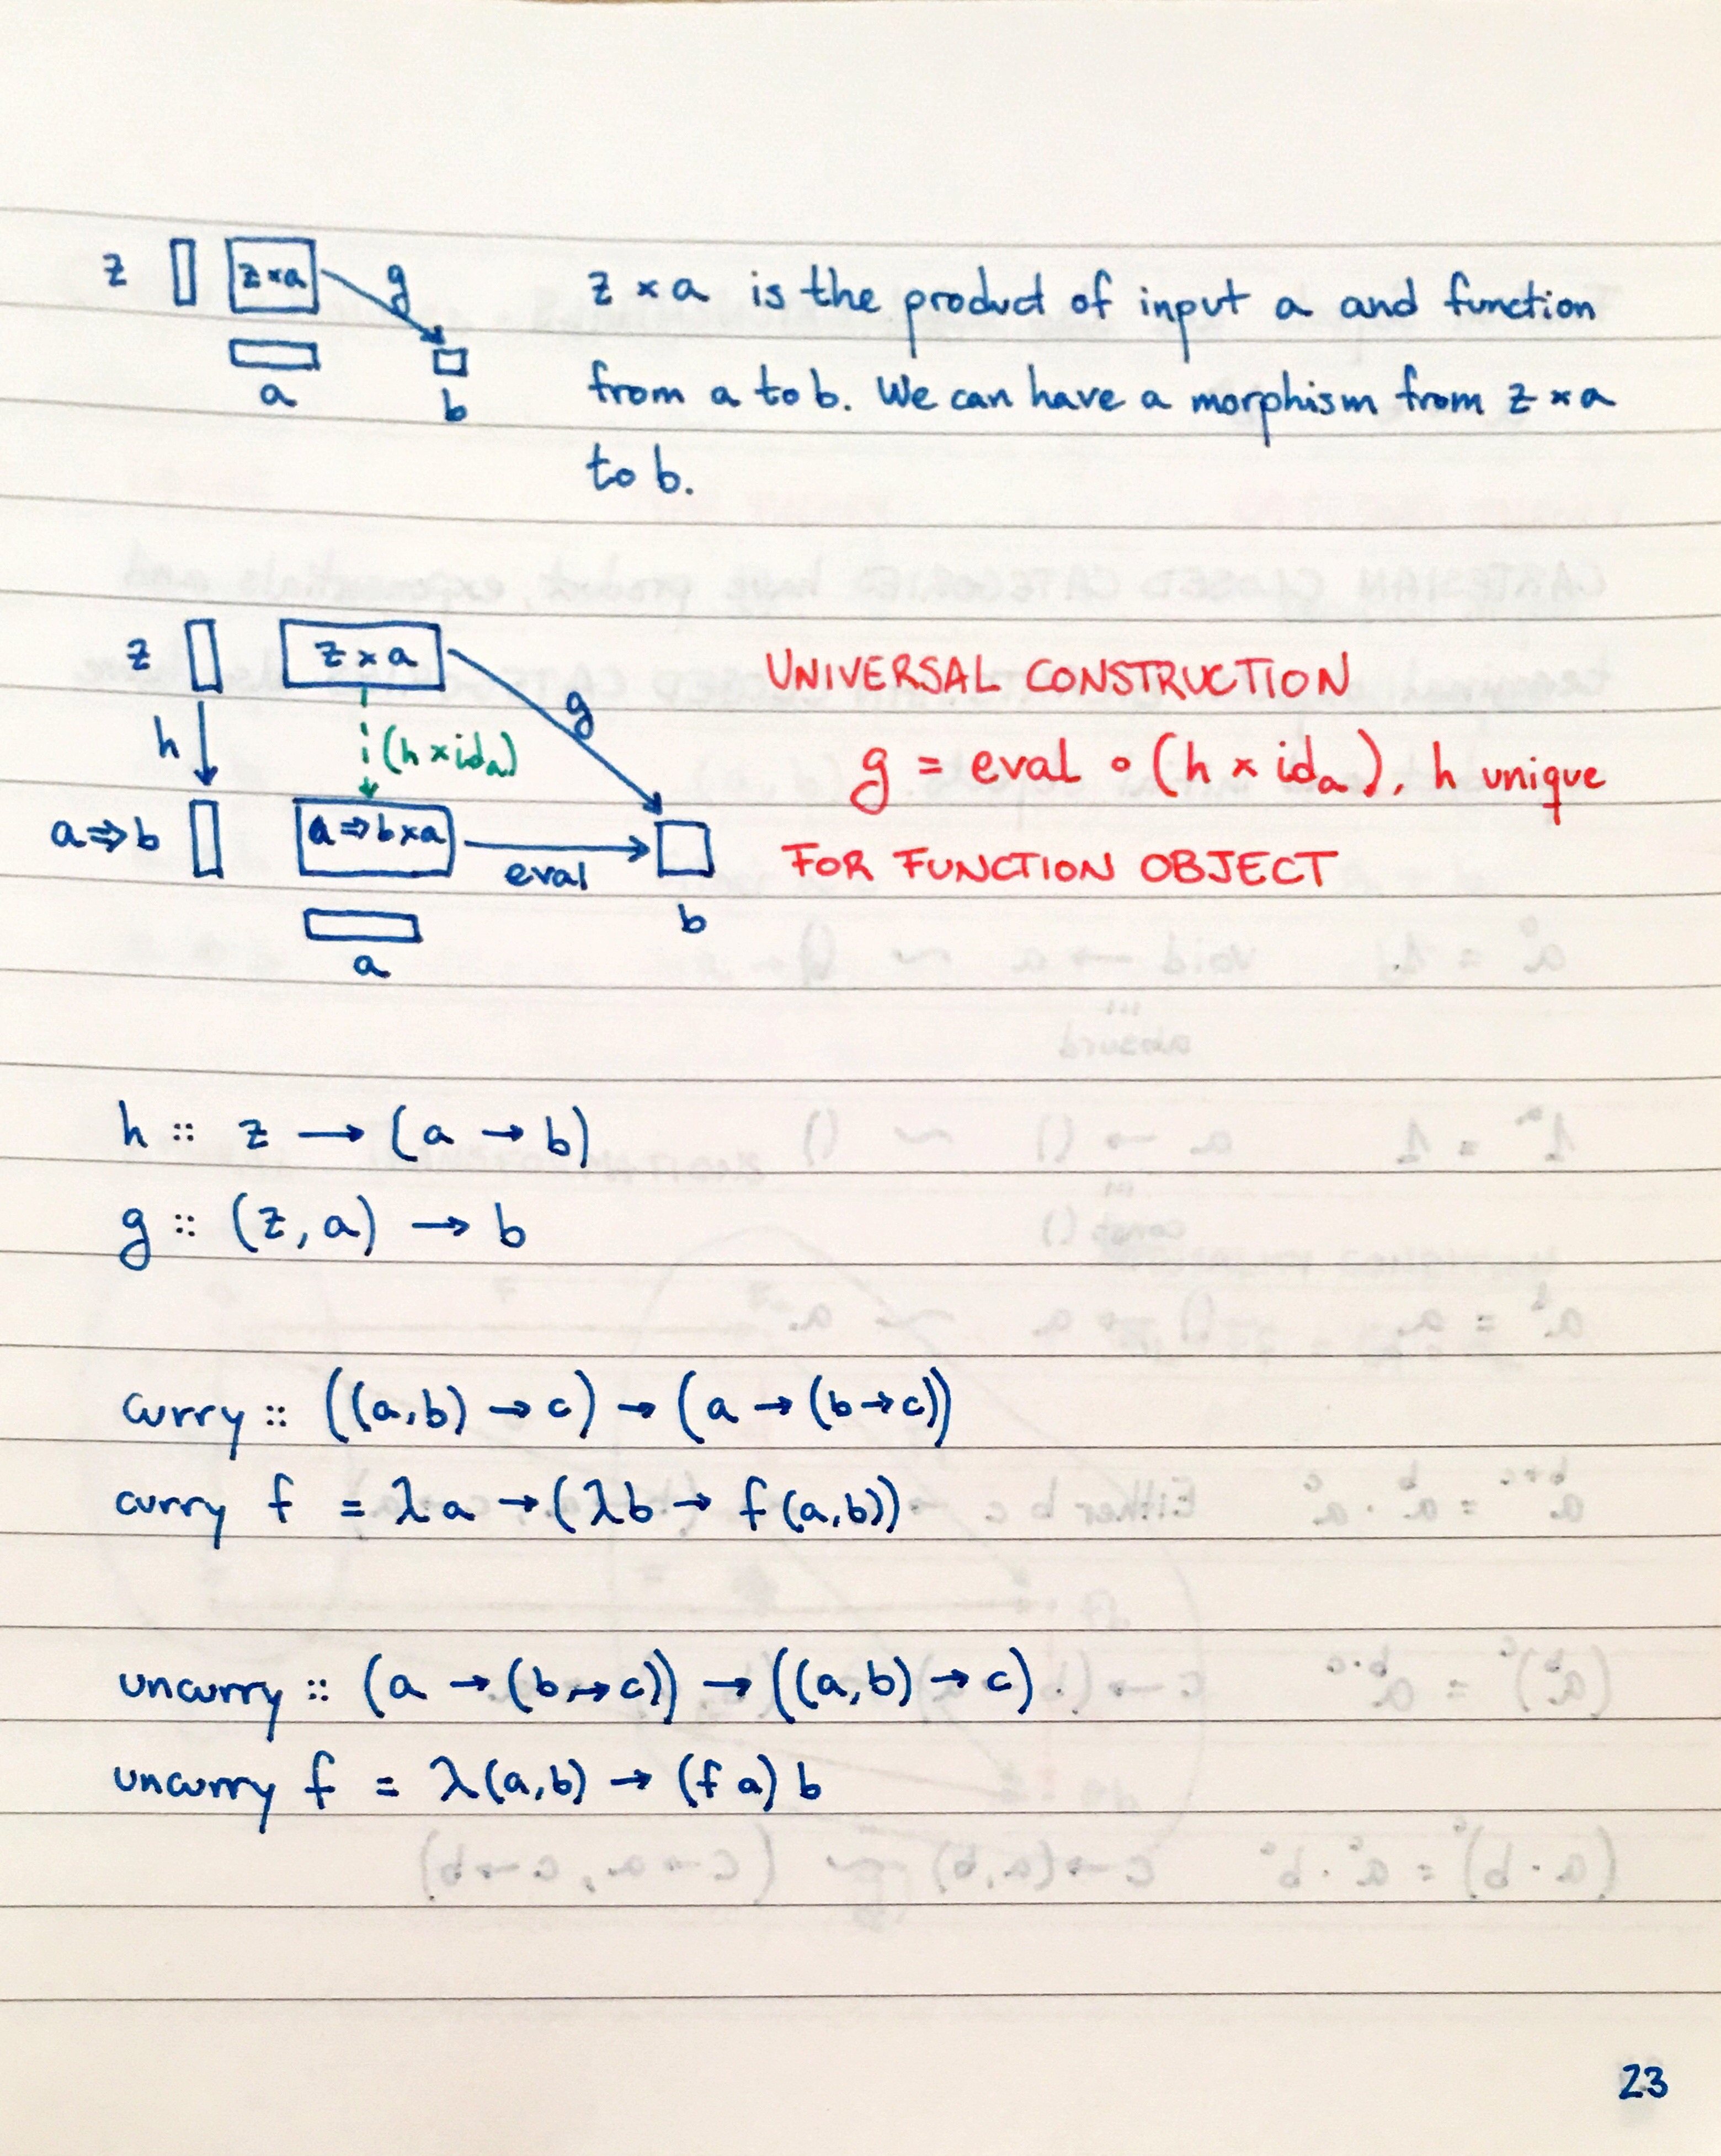 z z×a g z × a is the product of input a and function
a b from a to b. We can have a morphism from z × a
to b.
z z × a g UNIVERSAL CONSTRUCTION
h (h × id_a) g = eval ∘ (h × id_a), h unique
a⇒b a⇒b×a eval FOR FUNCTION OBJECT
b
a
h :: z → (a → b)
g :: (z, a) → b
curry :: ((a,b) → c) → (a → (b→c))
curry f = λa → (λb → f(a,b))
uncurry :: (a → (b→c)) → ((a,b) → c)
uncurry f = λ(a,b) → (f a) b
23